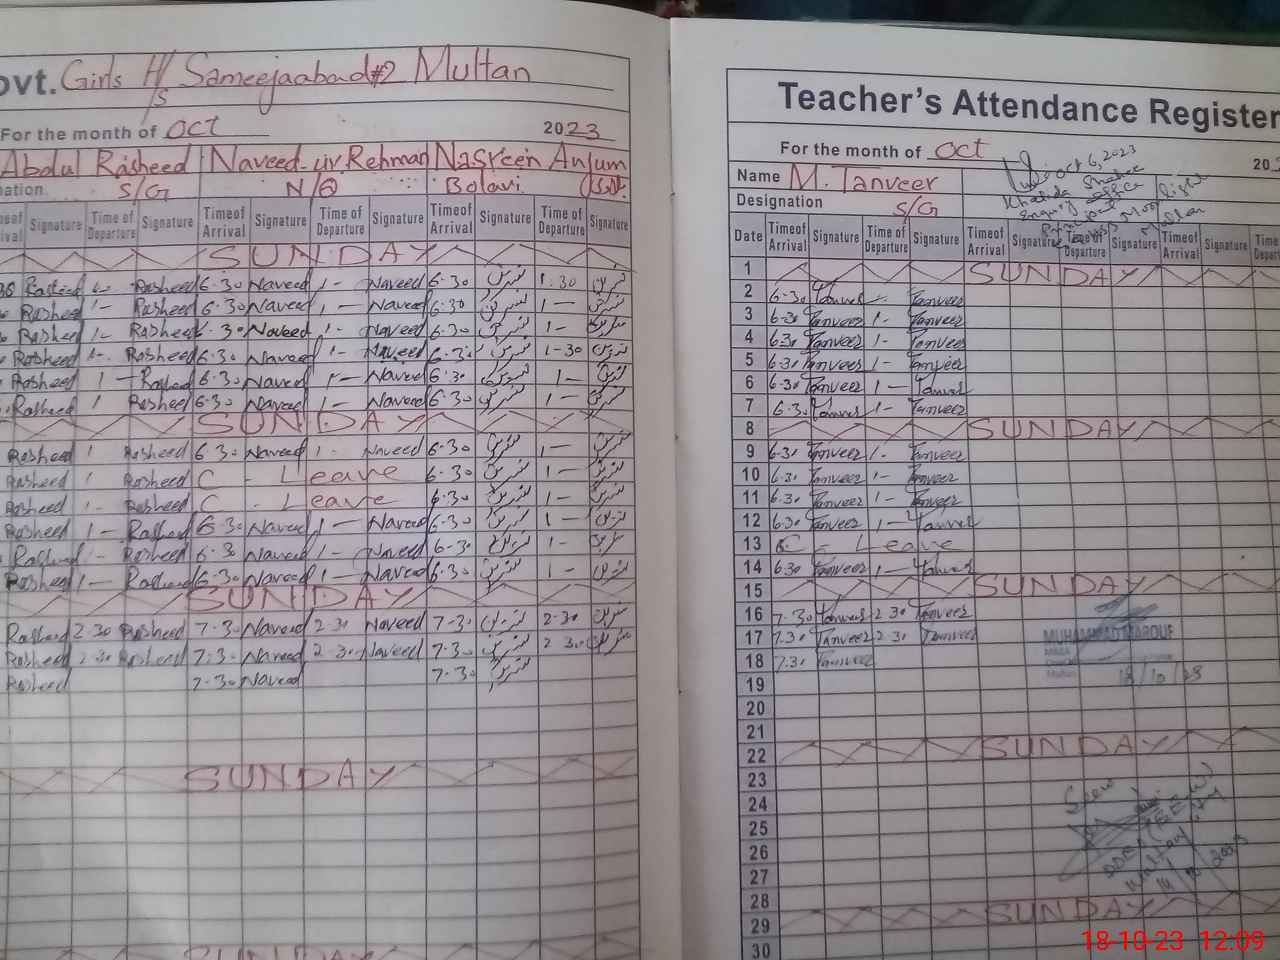 ovt. Girls H/s Sameejaabad #2 Multan
For the month of Oct 2023
Abdul Rasheed Naveed-ur Rehman Nasreen Anjum
nation. S/G N/Q
Signature Time of Departure Signature Time of Arrival Signature Time of Departure Signature Time of Arrival Signature Time of Departure Signature
SUNDAY
Rasheed 6.30 Naveed 1- Naveed 6.30 نسرین 1.30 نسرین
Rasheed 1- Rasheed 6.30 Naveed 1- Naveed 6.30 نسرین 1- نسرین
Rasheed 1- Rasheed 6.30 Naveed 1- Naveed 6.30 نسرین 1- نسرین
Rasheed 1- Rasheed 6.30 Naveed 1- Naveed 6.30 نسرین 1-30 نسرین
Rasheed 1- Rasheed 6.30 Naveed 1- Naveed 6.30 نسرین 1- نسرین
Rasheed 1- Rasheed 6.30 Naveed 1- Naveed 6.30 نسرین 1- نسرین
SUNDAY
Rasheed 1- Rasheed 6.30 Naveed 1- Naveed 6.30 نسرین 1- نسرین
Rasheed 1- Rasheed C - Leave 6.30 نسرین 1- نسرین
Rasheed 1- Rasheed C - Leave 6.30 نسرین 1- نسرین
Rasheed 1- Rasheed 6.30 Naveed 1- Naveed 6.30 نسرین 1- نسرین
Rasheed 1- Rasheed 6.30 Naveed 1- Naveed 6.30 نسرین 1- نسرین
Rasheed 1- Rasheed 6.30 Naveed 1- Naveed 6.30 نسرین 1- نسرین
SUNDAY
Rasheed 2.30 Rasheed 7.30 Naveed 2.30 Naveed 7.30 نسرین 2.30 نسرین
Rasheed 2.30 Rasheed 7.30 Naveed 2.30 Naveed 7.30 نسرین 2.30 نسرین
Rasheed 7.30 Naveed 7.30 نسرین
SUNDAY
SUNDAY
Teacher's Attendance Register
For the month of Oct 20
Name M. Tanveer
Oct 6, 2023
Designation S/G
Date Time of Arrival Signature Time of Departure Signature Time of Arrival Signature Time of Departure Signature Time of Arrival Signature
1 SUNDAY
2 6.30 Tanveer 1- Tanveer
3 6.30 Tanveer 1- Tanveer
4 6.30 Tanveer 1- Tanveer
5 6.30 Tanveer 1- Tanveer
6 6.30 Tanveer 1- Tanveer
7 6.30 Tanveer 1- Tanveer
8 SUNDAY
9 6.30 Tanveer 1- Tanveer
10 6.30 Tanveer 1- Tanveer
11 6.30 Tanveer 1- Tanveer
12 6.30 Tanveer 1- Tanveer
13 C - Leave
14 6.30 Tanveer 1- Tanveer
15 SUNDAY
16 7.30 Tanveer 2.30 Tanveer
17 7.30 Tanveer 2.30 Tanveer
MUHAMMAD MAROUF
18 7.30 Tanveer
18/10/23
19
20
21
22 SUNDAY
23
24
Seen
25
26
27
28
29 SUNDAY
30
18-10-23 12:09